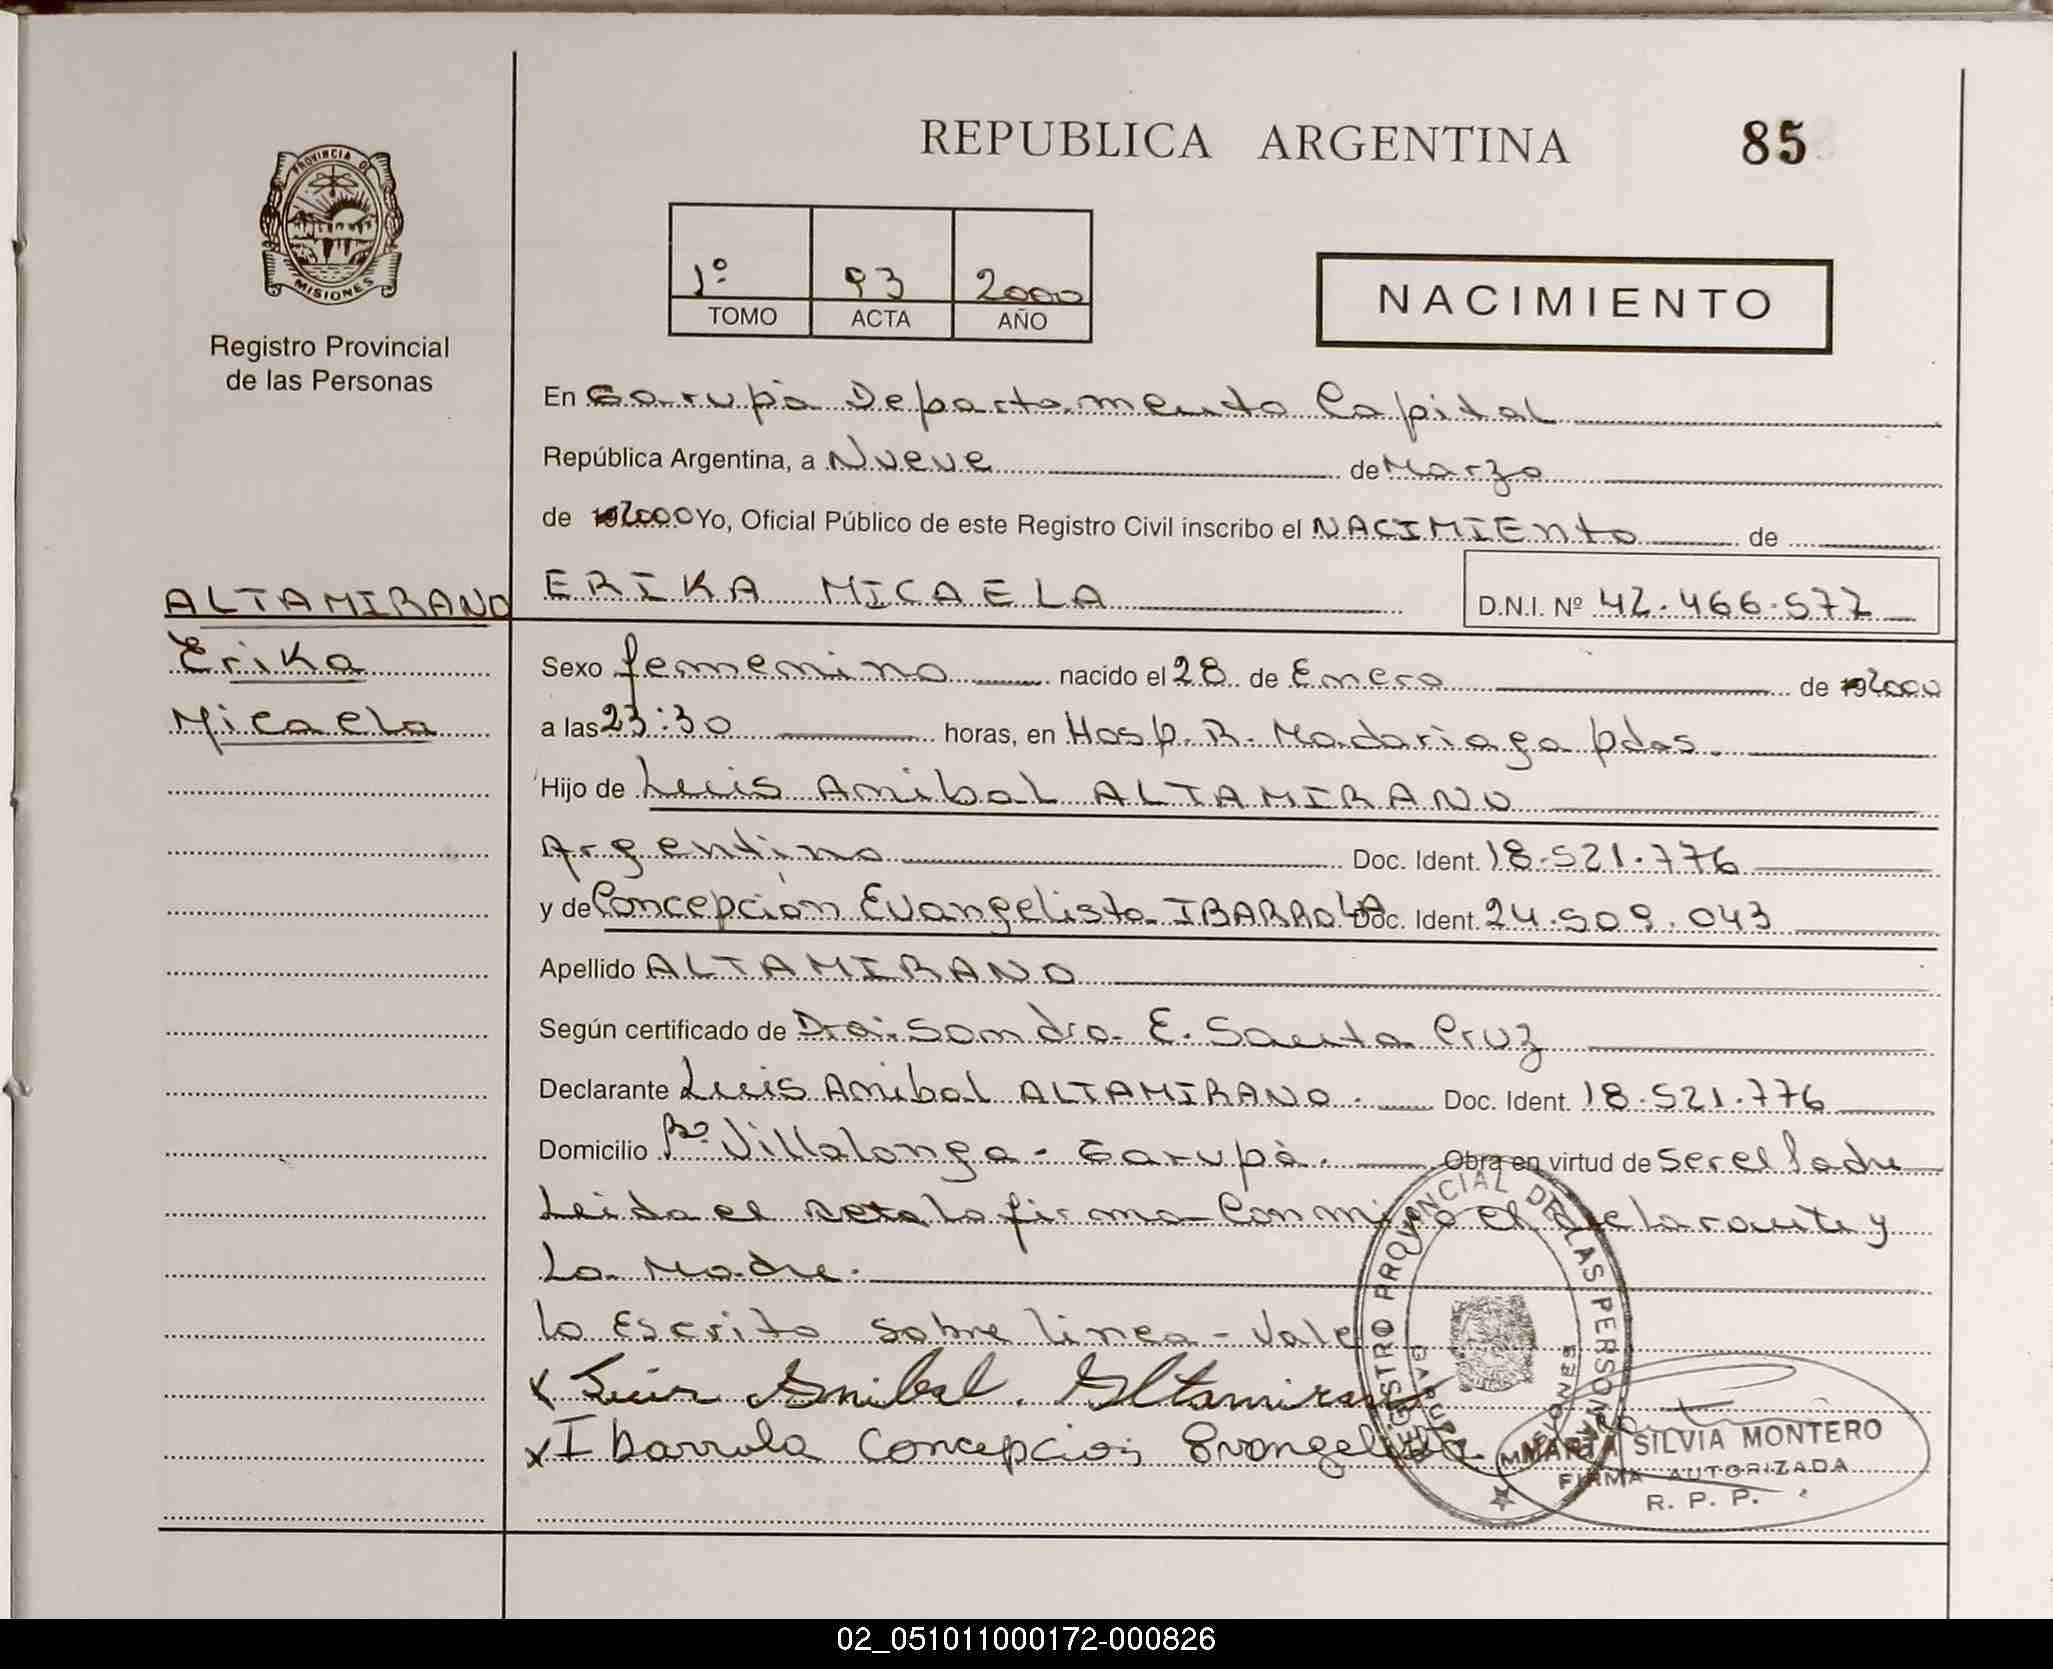 REPUBLICA ARGENTINA
85
PROVINCIA DE
MISIONES
Registro Provincial
de las Personas
1º 93 2000
TOMO ACTA AÑO
NACIMIENTO
En Garupá Departamento Capital
República Argentina, a Nueve de Marzo
de 192000 Yo, Oficial Público de este Registro Civil inscribo el NACIMIENto de
ALTAMIRANO
Erika
Micaela
ERIKA MICAELA
D.N.I. Nº 42.466.577
Sexo femenino nacido el 28 de Enero de 192000
a las 23:30 horas, en Hosp. R. Madariaga pdas.
Hijo de Luis Anibal ALTAMIRANO
Argentino Doc. Ident. 18.521.776
y de Concepción Evangelista IBARROLA Doc. Ident. 24.509.043
Apellido ALTAMIRANO
Según certificado de Dra. Sandra E. Santa Cruz
Declarante Luis Anibal ALTAMIRANO. Doc. Ident. 18.521.776
Domicilio Bº Villalonga - Garupá. Obra en virtud de ser el Padre
Leida el acta la firma Conmigo el declarante y
La Madre.
lo Escrito sobre linea - Vale
x Luis Anibal. Altamirano
x Ibarrola Concepcion Evangelista
REGISTRO PROVINCIAL DE LAS PERSONAS
GARUPA
MISIONES
MARIA SILVIA MONTERO
FIRMA AUTORIZADA
R. P. P.
02_051011000172-000826